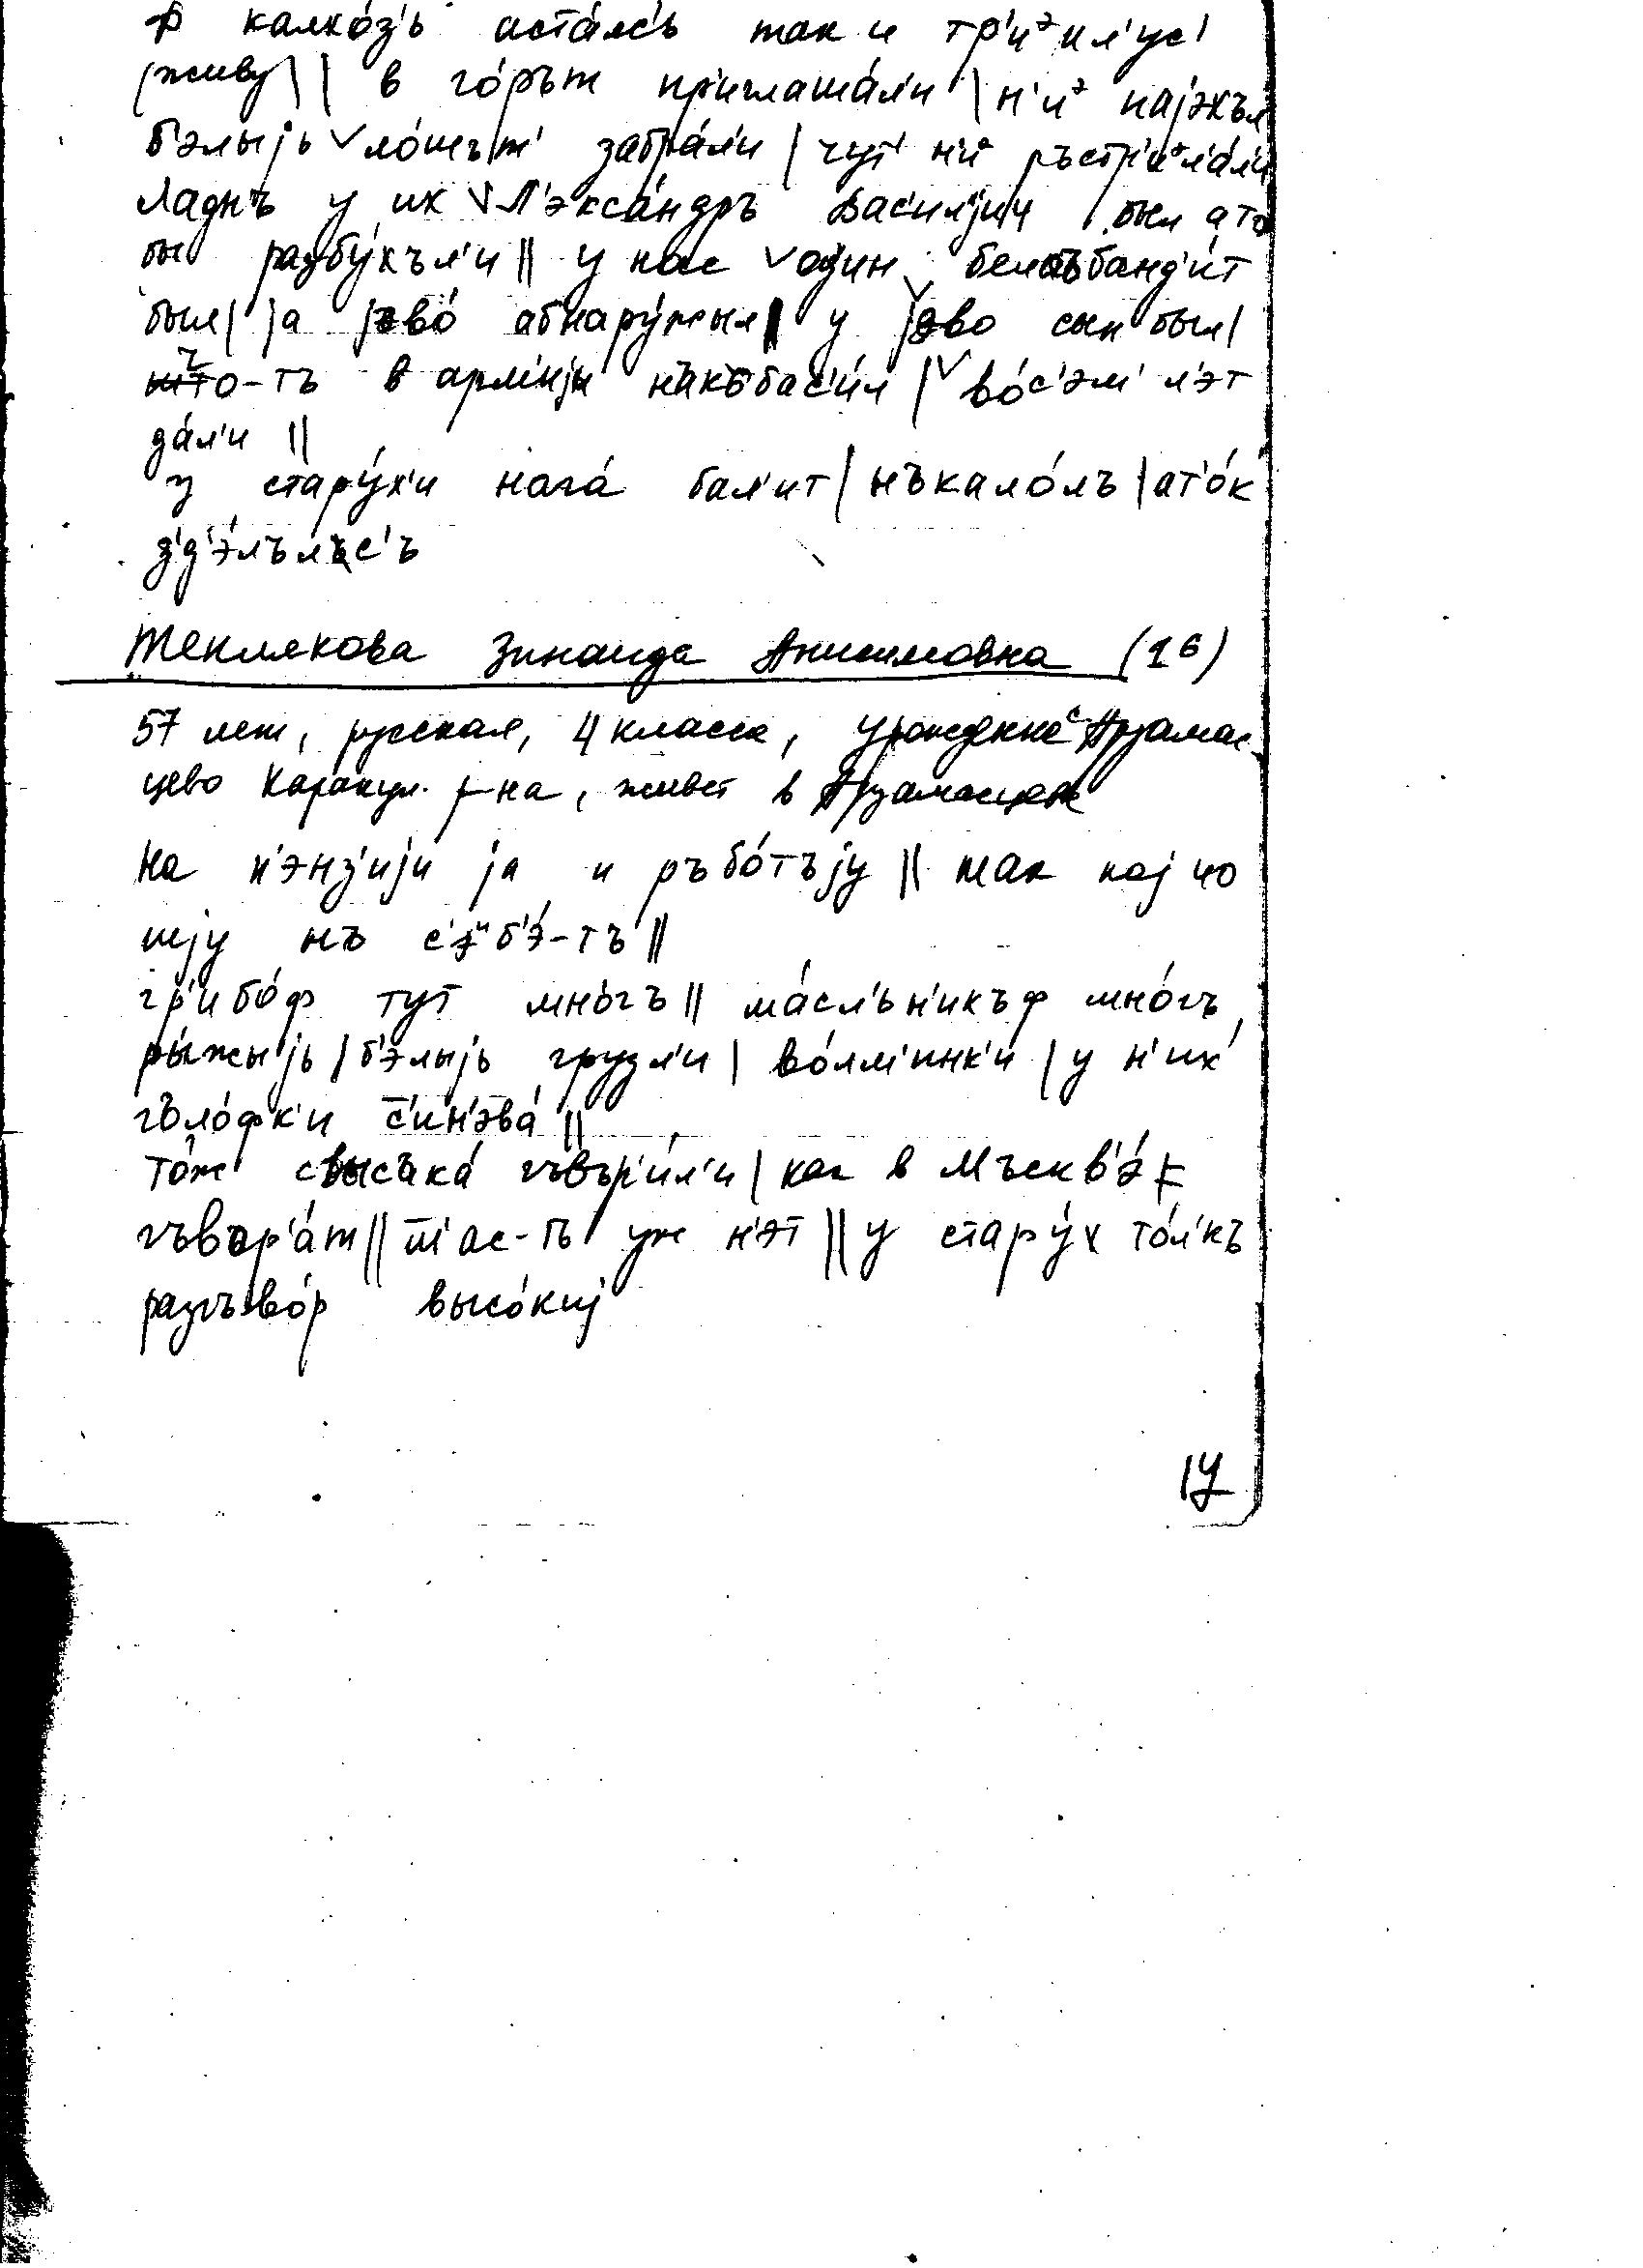 ф калхо́з'ь аста́лс'ъ так и тр'иэпл'ус'
живу || в го́рът пр'иглаша́л'и | н'иэ пајэхъл
б'элыјь ло́шът' забра́л'и | чут' н'иэ ръстр'иэл'а́л'и
Ладнъ у их Л'экса́ндръ Вас'ил'јич был ато
бы разбу́хъл'и || у нас один белъбанд'и́т
был | ја јэво́ абнару́жыл || у јэво сын был |
что-тъ в арм'иjи нъкъбас'и́л | во́с'эм' л'эт
да́л'и ||
у стару́х'и нага́ бал'ит | нъкало́лъ | ат'о́к
з'д'э́лълъс'ъ
Теплякова Зинаида Анисимовна (16)
57 лет, русская, 4 класса, урожденка с Арзамас-
цево Каракул. р-на, живет в Арзамасцеве
на п'энз'иjи ја и ръбо́тъју || так кој чо
шју нъ с'эиб'э́-тъ ||
гр'ибо́ф тут мно́гъ || ма́сл'ън'икъф мно́гъ
ры́жыјь | б'э́лыјь грузл'и | во́лм'инк'и | у н'их
гъло́фк'и с'ин'эва́ ||
то́ж свысака́ гъвър'и́л'и | как в Мъскв'э́
гъвър'а́т || т'ас-тъ уж н'эт || у стару́х то́л'къ
разгъво́р высо́киј
17